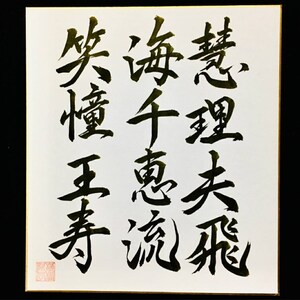 慧理夫飛
海千恵流
笑憧王寿